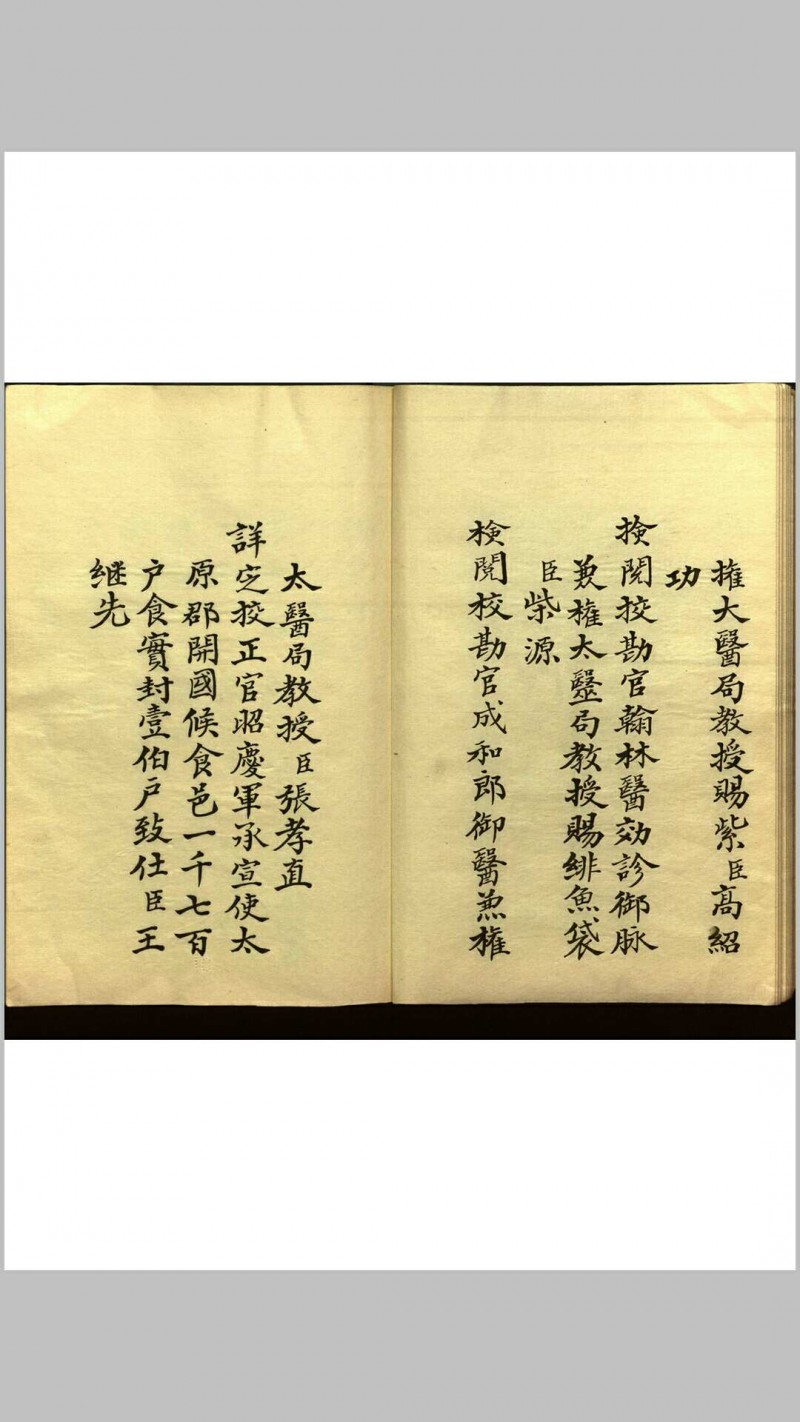 權大醫局教授賜紫臣高紹
功
撿閱挍勘官翰林醫効診御脉
兼權太醫局教授賜緋魚袋
臣柴源
検閱校勘官成和郎御醫兼權
太醫局教授臣張孝直
詳定挍正官昭慶軍承宣使太
原郡開國候食邑一千七百
户食實封壹伯户致仕臣王
継先